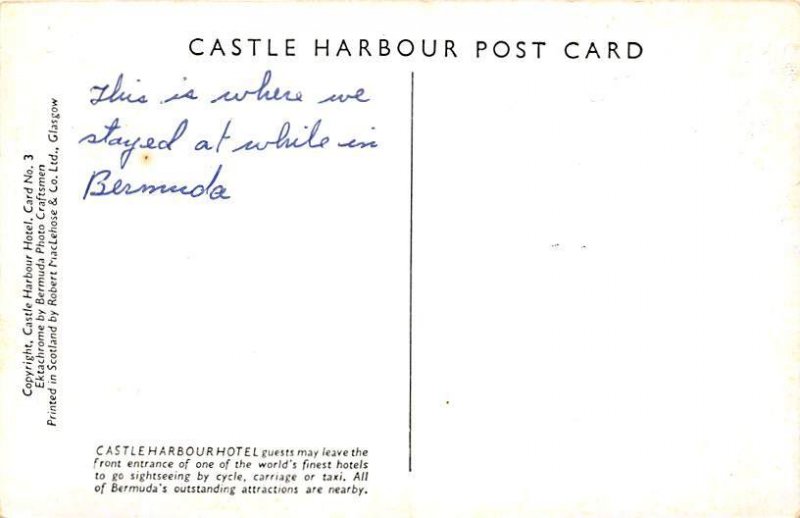 CASTLE HARBOUR POST CARD
This is where we
stayed at while in
Bermuda
Copyright, Castle Harbour Hotel. Card No. 3
Ektachrome by Bermuda Photo Craftsmen
Printed in Scotland by Robert MacLehose & Co. Ltd., Glasgow
CASTLE HARBOUR HOTEL guests may leave the
front entrance of one of the world's finest hotels
to go sightseeing by cycle, carriage or taxi. All
of Bermuda's outstanding attractions are nearby.